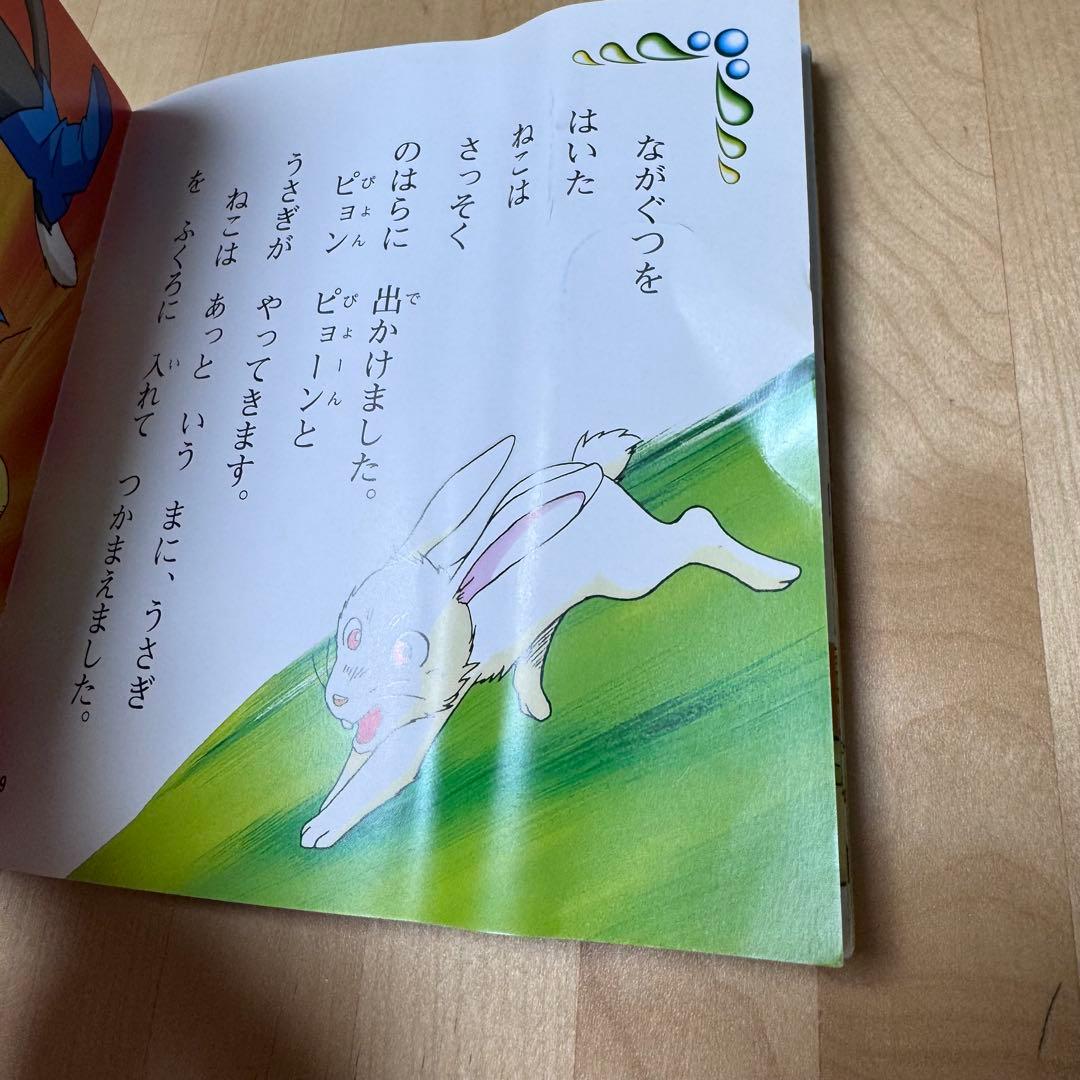 ながぐつを
はいた
ねこは
さっそく
のはらに 出かけました。
ピョン ピョーンと
うさぎが やってきます。
ねこは あっと いう まに、うさぎ
を ふくろに 入れて つかまえました。
9